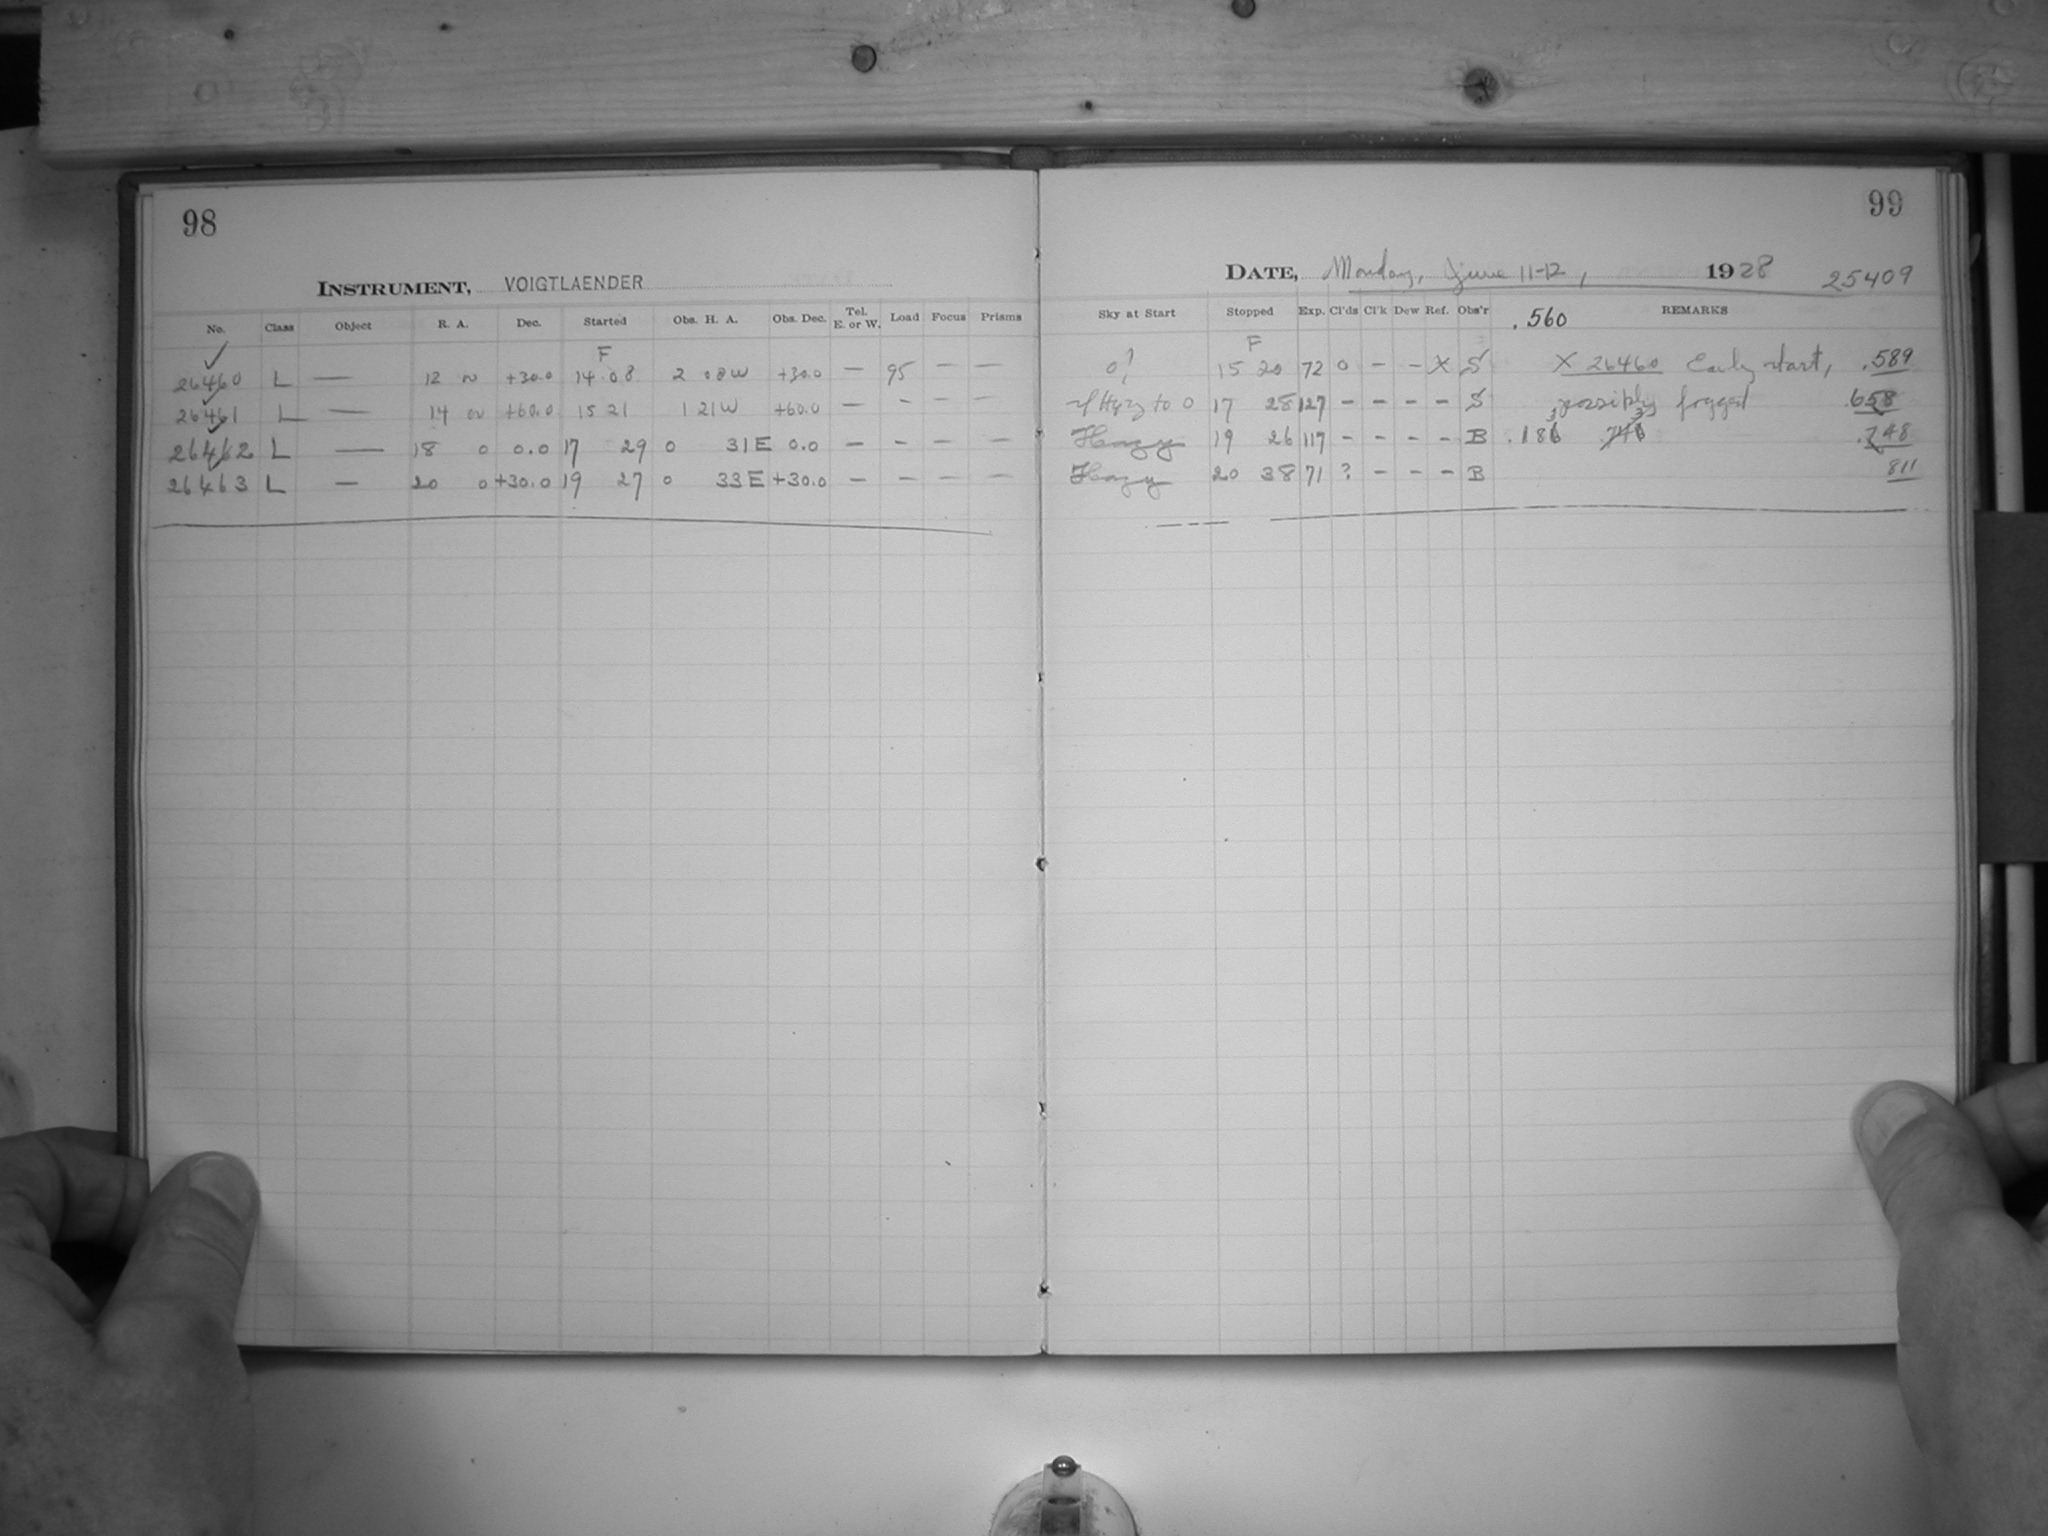 98
INSTRUMENT, VOIGTLAENDER
No. Class Object R. A. Dec. Started Obs. H. A. Obs. Dec. Tel. E. or W. Load Focus Prisms
F
26460 L — 12 +30.0 14 08 2 08 W +30.0 — 95 — —
26461 L — 14 +60.0 15 21 1 21 W +60.0 — - — —
26462 L — 18 0 0.0 17 29 0 31 E 0.0 — — — —
26463 L — 20 0 +30.0 19 27 0 33 E +30.0 — — — —
99
DATE, Monday, June 11-12, 1928 25409
Sky at Start Stopped Exp. Cl'ds Cl'k Dew Ref. Obs'r .560 REMARKS
F
0? 15 20 72 0 - - X S X 26460 Early start, .589
to 0 17 28 127 - - - - S possibly fogged .658
Hazy 19 26 117 - - - - B .748
Hazy 20 38 71 ? - - - B 811